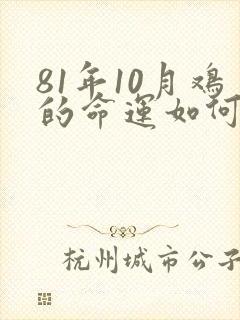 81年10月鸡
的命运如何
杭州城市公子